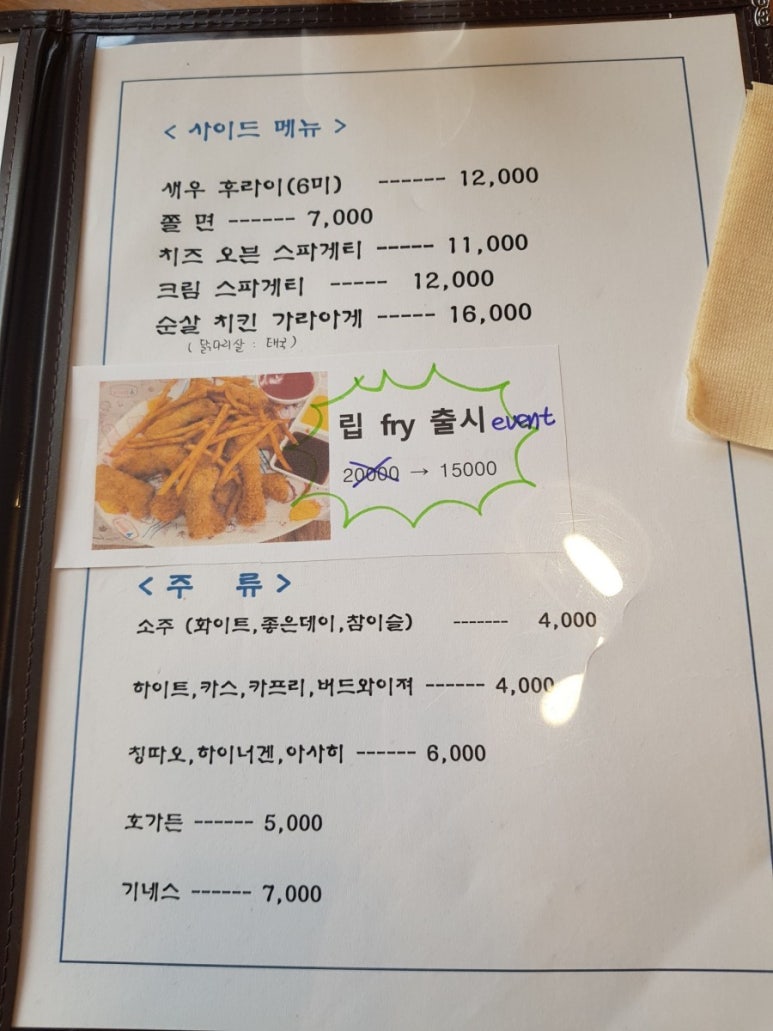 < 사이드 메뉴 >
새우 후라이(6미) ------ 12,000
쫄 면 ------ 7,000
치즈 오븐 스파게티 ----- 11,000
크림 스파게티 ----- 12,000
순살 치킨 가라아게 ----- 16,000
( 닭다리살 : 태국 )
립 fry 출시 event
20000 → 15000
< 주 류 >
소주 (화이트,좋은데이,참이슬) ------- 4,000
하이트,카스,카프리,버드와이져 ------ 4,000
칭따오,하이너겐,아사히 ------ 6,000
호가든 ------ 5,000
기네스 ------ 7,000